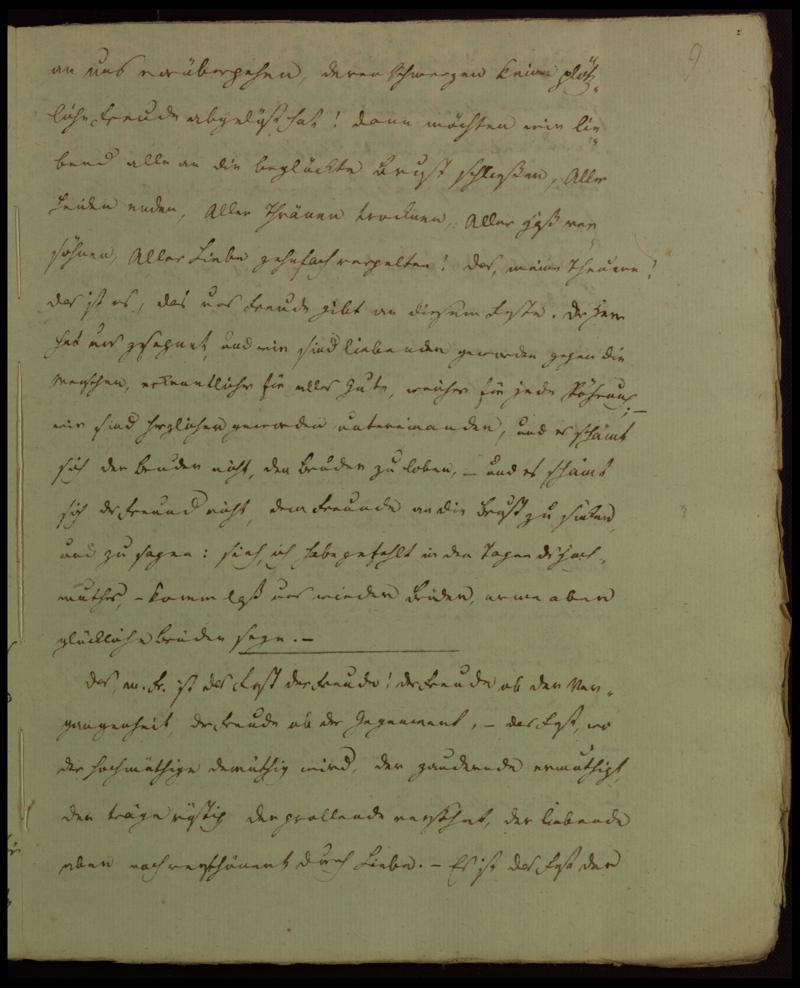 9
an uns vorübergehen, deren Schmerzen keine plötz-
liche Freude abgelöst hat! dann möchten wir lie-
bend alle an die beglückte Brust schließen, Aller
Leiden enden, Aller Thränen trocknen, Aller Haß ver
söhnen, Aller Liebe zehnfach vergelten! das, meine Theuern!
das ist es, das uns Freude gibt an diesem Feste. Der Herr
hat uns gesegnet, und wir sind liebender geworden gegen die
Menschen, erkenntlicher für alles Gute, weicher für jede Rührung;—
wir sind herzlicher geworden untereinander, und es schämt
sich der Bruder nicht, den Bruder zu loben, – und es schämt
sich der Freund nicht, dem Freunde an die Brust zu sinken,
und zu sagen: sieh, ich habe gefehlt in den Tagen des Hoch-
muthes, – komm laß uns wieder Brüder, arme aber
glückliche Brüder seyn. –
das, m. Fr. ist das Fest der Freude! der Freude ob der Ver-
gangenheit der Freude ob der Gegenwart, – das Fest, wo
der hochmüthige demüthig wird, der zaudernde ermuthigt,
der träge rüstig der grollende versöhnt, der liebende
aber noch verschönert durch Liebe. – Es ist das Fest der